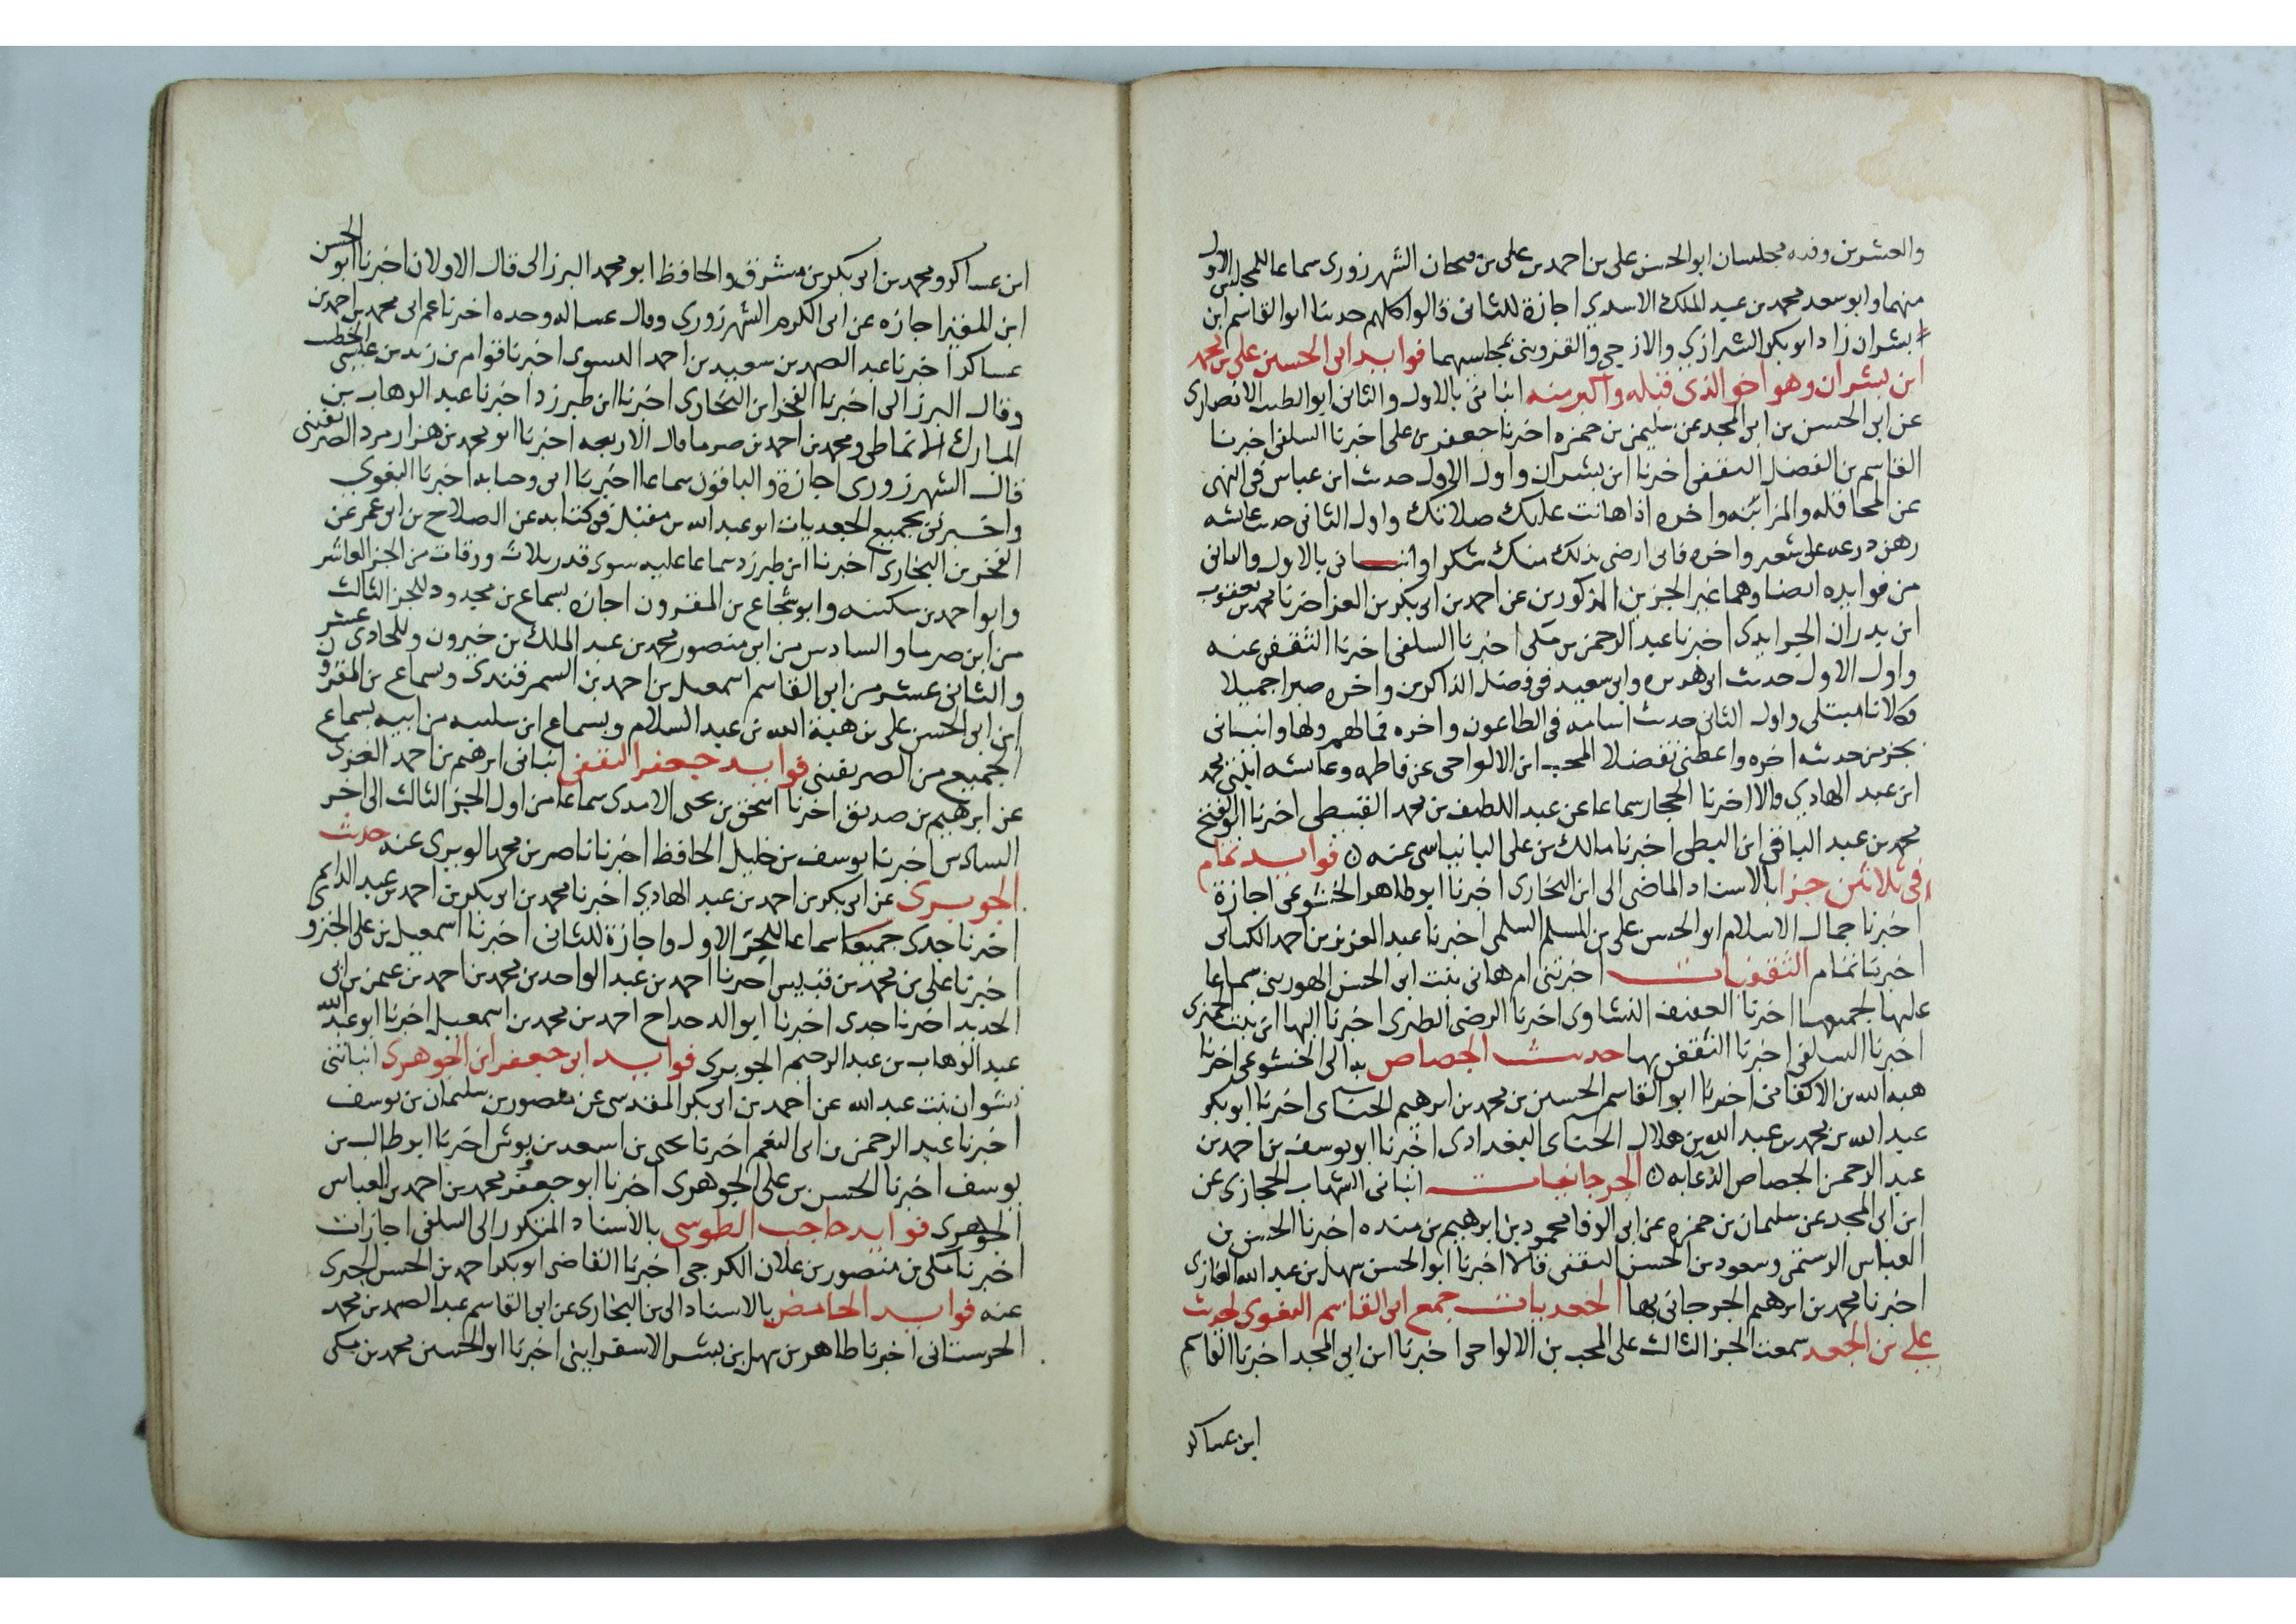 والعشرين وفيه مجلسان ابو الحسن على بن احمد بن على بن فتحان الشهرزورى سماعا للمجلس الاول
منهما وابو سعد محمد بن عبد الملك الاسدي اجازة للثانى قالوا كلهم حدثنا ابو القاسم ابن
بشران زاد ابو بكر الشيرازي والازجي والقزوينى بمجلسهما فوايد ابى الحسين على بن محمد
ابن بشران وهو اخو الذى قبله واكبر منه انبانى بالاول والثانى ابو الطيب الانصارى
عن ابى الحسن بن ابى المجد عن سليمن بن حمزه اخبرنا جعفر بن على اخبرنا السلفى اخبرنا
القاسم بن الفضل الثقفى اخبرنا ابن بشران واول الاول حديث ابن عباس فى النهى
عن المحاقله والمزابنه واخره اذا هانت عليك صلاتك واول الثانى حديث عايشه
رهن درعه على شعير واخره فانى ارضى بذلك منك شكرا وانبـــانى بالاول والثانى
من فوايده ايضا وهما غير الجزين المذكورين عن احمد بن ابى بكر بن العز اخبرنا محمد بن يعقوب
ابن بدران الجرايدى اخبرنا عبد الرحمن بن مكى اخبرنا السلفى اخبرنا الثقفى عنه
واول الاول حديث ابى هريره وابى سعيد فى فضل الذاكرين واخره صبرا جميلا
فكلانا مبتلى واول الثانى حديث اسامه فى الطاعون واخره فما لهم ولها وانبانى
بجز من حديثه اخره واعطنى تفضلا المحب ابن الالواحى عن فاطمه وعايشه ابنتى محمد
ابن عبد الهادي قالا اخبرنا الحجار سماعا عن عبد اللطيف بن محمد القبيطى اخبرنا ابو الفتح
محمد بن عبد الباقى ابن البطى اخبرنا مالك بن على البانياسى عنه ۞ فوايد تمام
فى ثلاثين جزا بالاسناد الماضى الى ابن البخارى اخبرنا ابو طاهر الخشوعى اجازة
اخبرنا جمال الاسلام ابو الحسن على بن المسلم السلمى اخبرنا عبد العزيز بن احمد الكتانى
اخبرنا تمام الثقفيات اخبرتنى ام هانى بنت ابى الحسن الهورينى سماعا
عليها لجميعها اخبرنا العفيف النشاورى اخبرنا الرضى الطبرى اخبرنا ابن بنت الجميزى
اخبرنا السلفى اخبرنا الثقفى بها حديث الجصاص به الى الخشوعى اخبرنا
هبه الله بن الاكفانى اخبرنا ابو القاسم الحسين بن محمد بن ابرهيم الحنـاى اخبرنا ابو بكر
عبد الله بن محمد بن عبد الله بن هلال الحناى البغدادى اخبرنا ابو يوسف بن احمد بن
عبد الرحمن الجصاص الدعا به ۞ الجرجانيات انبانى الشهاب الحجازى عن
ابن ابى المجد عن سليمان بن حمزه عن ابى الوفا محمود بن ابرهيم بن منده اخبرنا الحسن بن
العباس الرستمى ومسعود بن الحسن الثقفى قالا اخبرنا ابو الحسن سهل بن عبد الله الغازى
اخبرنا محمد بن ابرهيم الجرجانى بها الجعديات جمع ابى القاسم البغوى لحديث
على بن الجعد سمعت الجز الثالث على المحب بن الالواحى اخبرنا ابن ابى المجد اخبرنا القاسم
ابن عساكر
ابن عساكر ومحمد بن ابى بكر بن مشرف والحافظ ابو محمد البرزالى قال الاولان اخبرنا ابو الحسن
ابن المقير اجازه عن ابى الكرم الشهرزوري وقال عساكر وحده اخبرنا عم ابى محمد بن احمد بن
عساكر اخبرنا عبد الصمد بن سعيد بن احمد النسوى اخبرنا قوام بن زيد بن عيسى الخطيب
وقال البرزالى اخبرنا الفخر ابن البخارى اخبرنا ابن طبرزد اخبرنا عبد الوهاب بن
المبارك الانماطى ومحمد بن احمد بن صرما قال الاربعه اخبرنا ابو محمد بن هزارمرد الصريفينى
قال الشهرزورى اجازة والباقون سماعا اخبرنا ابن حبابه اخبرنا البغوي
واخبرنى بجميع الجعديات ابو عبد الله بن مقبل فى كتابه عن الصلاح بن ابى عمر عن
الفخر بن البخارى اخبرنا ابن طبرزد سماعا عليه سوى قدر ثلاث ورقات من الجز العاشر
وابو احمد بن سكينه وابو شجاع بن المقرون اجازه بسماع بن للجز الثالث
من ابن صرما والسادس من ابى منصور محمد بن عبد الملك بن خيرون وللحادى عشر
والثانى عشر من ابى القاسم اسمعيل بن احمد بن السمرقندي وسماع بن المقرون
من ابى الحسن على بن هبة الله بن عبد السلام وبسماع ابن سكينه من ابيه بسماع
الجميع من الصريفينى فوايد جعفر الثقفى انبانى ابرهيم بن احمد الغزى
عن ابرهيم بن صديق اخبرنا اسحق بن يحيى الامدى سماعا من اول الجز الثالث الى اخر
السادس اخبرنا يوسف بن خليل الحافظ اخبرنا ناصر بن محمد الويرى عنه حديث
الجوبرى عن ابى بكر بن احمد بن عبد الهادي اخبرنا محمد بن ابى بكر بن احمد بن عبد الدايم
اخبرنا جدى جميعا سماعا للجز الاول واجازة للثانى اخبرنا اسمعيل بن على الجنزوى
اخبرنا على بن محمد بن قبيس اخبرنا احمد بن عبد الواحد بن محمد بن احمد بن عثمن بن ابى
الحديد اخبرنا جدى اخبرنا ابو الدحداح احمد بن محمد بن اسمعيل اخبرنا ابو عبد الله
عبد الوهاب بن عبد الرحيم الجوبرى فوايد ابى جعفر ابن الجوهرى انباتنى
نشوان بنت عبد الله عن احمد بن ابى بكر المقدسى عن منصور بن سليمان بن يوسف
اخبرنا عبد الرحمن بن ابى الفهم اخبرنا يحيى بن اسعد بن بوش اخبرنا ابو طالب بن
يوسف اخبرنا الحسن بن على الجوهرى اخبرنا ابو جعفر محمد بن احمد بن العباس
الجوهرى فوايد حاجب الطوسى بالاسناد المذكور الى السلفى اجازات
اخبرنا مكى بن منصور بن علان الكرجى اخبرنا القاضى ابو بكر احمد بن الحسن الحيرى
عنه فوايد الحامض بالاسناد الى بن البخارى عن ابى القاسم عبد الصمد بن محمد
الحرستانى اخبرنا طاهر بن سهل بن بشر الاسفراينى اخبرنا ابو الحسين محمد بن مكى